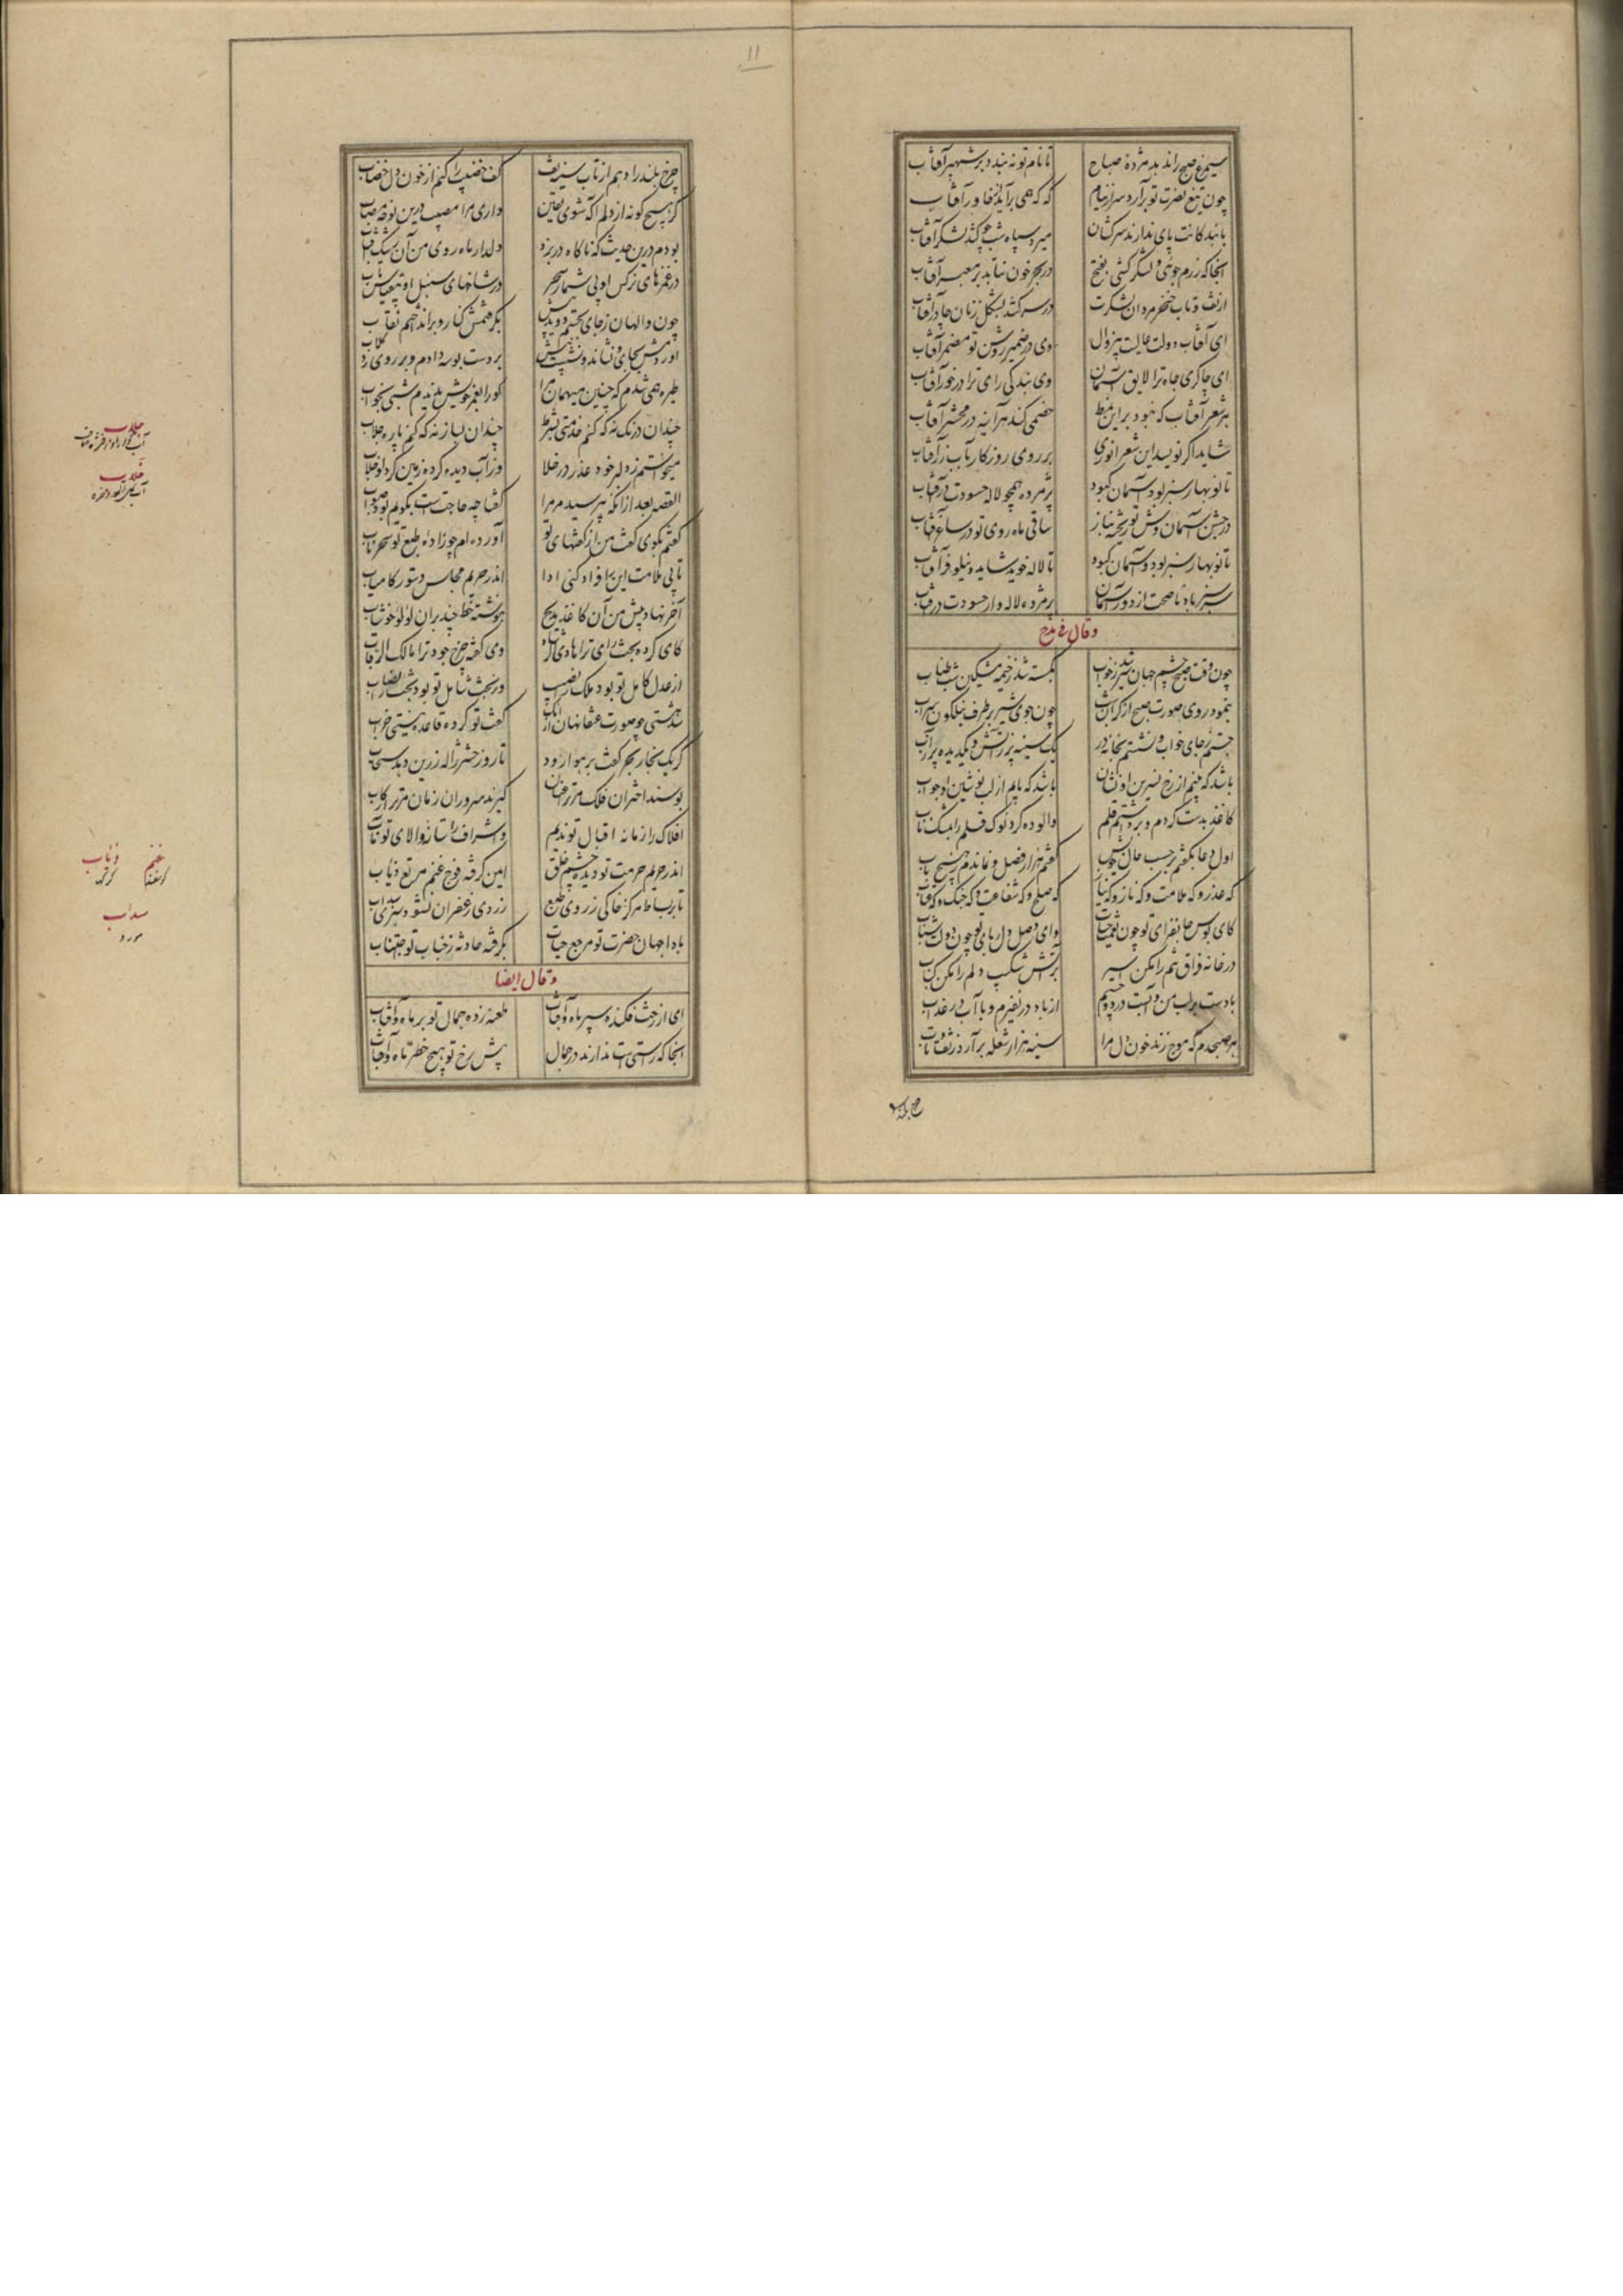 سیمرغ صبح را ندهد مژدهٔ صباح تا نام تو نه بندد بر شهپر آفتاب
چون تیغ نصرت تو برآرد سر از نیام که که همی برآید از خاور آفتاب
با بندگانت پای ندارند سرکشان میرد سپاه شب چو کشد لشکر آفتاب
آنجا که رزم جوئی و لشکر کشی بفتح در بحر خون نتابد بر معبر آفتاب
از تف و تاب خنجر مردان لشکرت در سر کشد بشکل زنان چادر آفتاب
ای آفتاب دولت عالیت بیزوال وی در ضمیر روشن تو مضمر آفتاب
ای چاکری جاه ترا لایق آسمان وی بندگی رای ترا درخور آفتاب
بر شعر آفتاب که نبود برین نمط خصمی کند هر آینه در محشر آفتاب
شاید اگر نویسد این شعر انوری بر روی روزگار بآب زر آفتاب
تا نوبهار سبز بود و آسمان کبود پژمرده همچو لاله حسودت در آفتاب
در جشن آسمان وش تو ریخته بناز ساقی ماه روی تو در ساغر آفتاب
تا نوبهار سبز بود و آسمان کبود تا لاله خوید شاید و نیلوفر آفتاب
سبز باد ناصحت از دور آسمان پژمرده لاله وار حسودت در آفتاب
وقال فی مدح
چون وقت صبح چشم جهان سیر شد ز خواب بگسسته شد ز خیمهٔ مشکین شب طناب
بنمود روی صورت صبح از کران شب چون جوی شیر بر طرف نیلگون سراب
جستم ز جای خواب و نشستم بخانه در یک سینه پر ز آتش و یک دیده پر ز آب
باشد که بینم از رخ نسرین او نشان باشد که یابم از لب نوشین او جواب
کاغذ بدست کردم و برداشتم قلم والوده کرد نوک قلم را بمشک ناب
اول دعا بگفتم بر حسب حال خویش گفتم هزار فصل و نماندم بهیچ باب
که عذر و که ملامت و که ناز و که نیاز که صلح و که شفاعت و که جنگ و که عتاب
کای بوس جانفزای تو چون نعمت حیات وای وصل دلربای تو چون دولت شباب
در خانهٔ فراق تنم را مکن اسیر بر آتش شکیب دلم را مکن کباب
بادست بر لب من و آبست در دو چشم از باد در نفیرم و با آب در عذاب
هر صبحدم که موج زند خون دل مرا سینه هزار شعله برآرد ز تف و تاب
۱۱
چرخ بلند را دهم از تاب سینه تف کف خضیب را کنم از خون دل خضاب
گر هیچ گونه از دلم آگه شوی یقین داری مرا مصیب درین نوحه و مصاب
بودم درین حدیث که ناگاه در بزد دلدار ماه روی من آن
در غمزهای نرگس او بی شمار سحر در شاخهای سنبل او بیقیاس تاب
چون والهان ز جای بجستم دویدیش بگرفتمش کنار و براندا ختم نقاب
آوردمش بجای و نشاندم و نشست پیش بر دست بوسه دادم و بر روی زد گلاب
طیره همی شدم که چنین میهمان مرا کورا بعمر خویش ندیدم شبی بخواب
چندان درنگ نه که کنم خدمتی بشرط چندان بساز نه که کنم پاره جلاب
میخواستم ز دلبر خود عذر در خلا وز آب دیده کرده زمین گرد او خلاب
القصه بعد از آنکه بپرسید مر مرا گفتا چه حاجت است بگویم بود صواب
گفتم بگوی گفت من از گفتهای تو آورده ام چو زادهٔ طبع تو سحر ناب
تا بی ملامت این را فراد کنی ادا اندر حریم مجلس دستور کامیاب
آخر نهاد پیش من آن کاغذ مدیح بنوشته خط چند بران لؤلؤ خوشاب
کای کرده بخت رای ترا هادی الرشاد وی گفته چرخ جود ترا مالک الرقاب
از عدل کامل تو بود ملک را نصیب وز بخت شامل تو بود بخت را نصاب
گفت تو کرده قاعدهٔ نیستی خراب
گر یک بخار بحر کفت بر هوا رود تا روز حشر ژاله زرین دهد سحاب
بوسند اختران فلک مر ترا عنان گیرند سروران زمان مر ترا رکاب
افلاک را زمانه اقبال تو ندیم و اشراف را ستانهٔ والای تو مآب
اندر حریم حرمت تو دیده چشم خلق ایمن گرفته فوج غنم مرتع ذیاب
تا بر بساط مرکز خاکی ز روی طبع زردی ز زعفران نشود سبزی سداب
بادا جهان حضرت تو مرجع حیات بگرفته حادثه ز جناب تو اجتناب
وقال ایضا
ای از رخت فکنده سپر ماه و آفتاب طعنه زده جمال تو بر ماه و آفتاب
آنجا که راستی است ندارند در جمال پیش رخ تو هیچ خطر ماه و آفتاب
جلاب
خلاب
غنم
گوسفند
ذئاب
گرگ
سداب